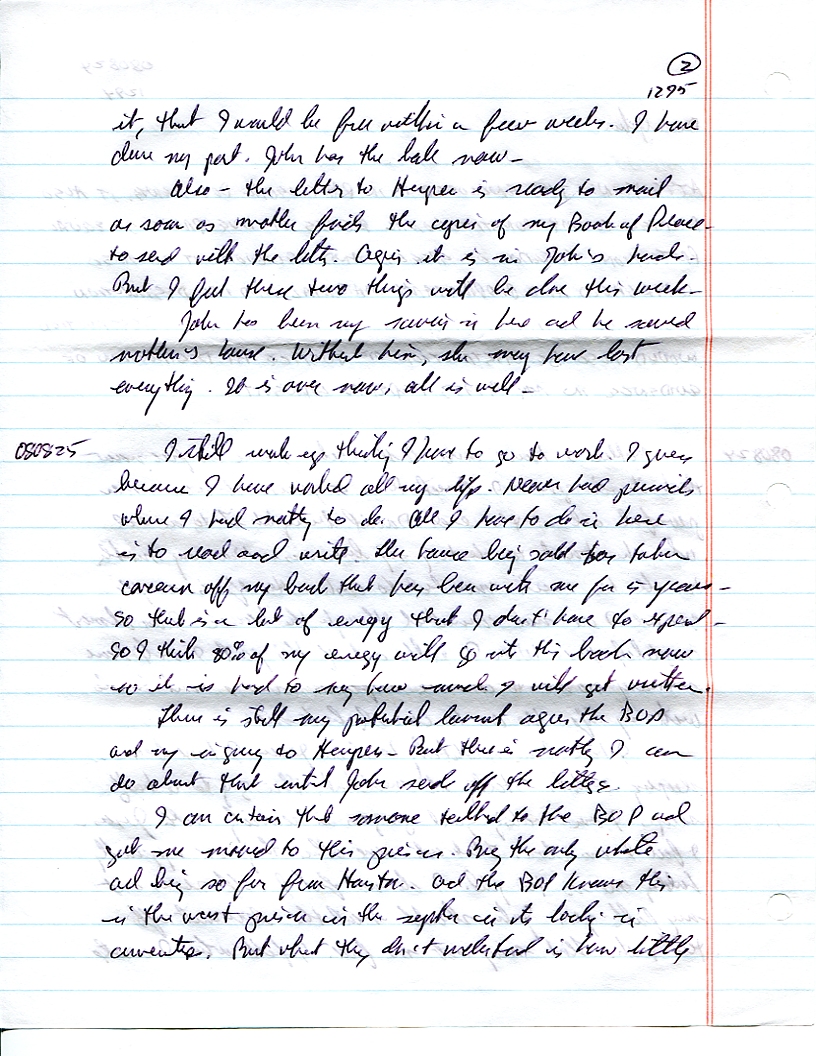 2
1295
it, that I would be free within a few weeks. I have
done my part. John has the ball now -
Also - the letter to Harper is ready to mail
as soon as mother finds the copies of my Book of Peace -
to send with the letter. Again it is in John's hands -
But I feel these two things will be done this week -
John has been my savior in here and he saved
mother's house. Without him, she may have lost
everything. It is over now, all is well -
080825 I still wake up thinking I have to go to work. I guess
because I have worked all my life. Never had periods
where I had nothing to do. All I have to do in here
is to read and write. The house being sold has taken
concern off my back that has been with me for 5 years -
So that is a lot of energy that I don't have to spend -
So I think 80% of my energy will go into this book now
so it is hard to say how much I will get written.
There is still my potential lawsuit against the BOP
and my inquiry to Harper - But there is nothing I can
do about that until John sends off the letters.
I am certain that someone talked to the BOP and
got me moved to this prison. Being the only white
and being so far from Houston. And the BOP knows this
is the worst prison in the system in its lacking in
amenities. But what they don't understand is how little